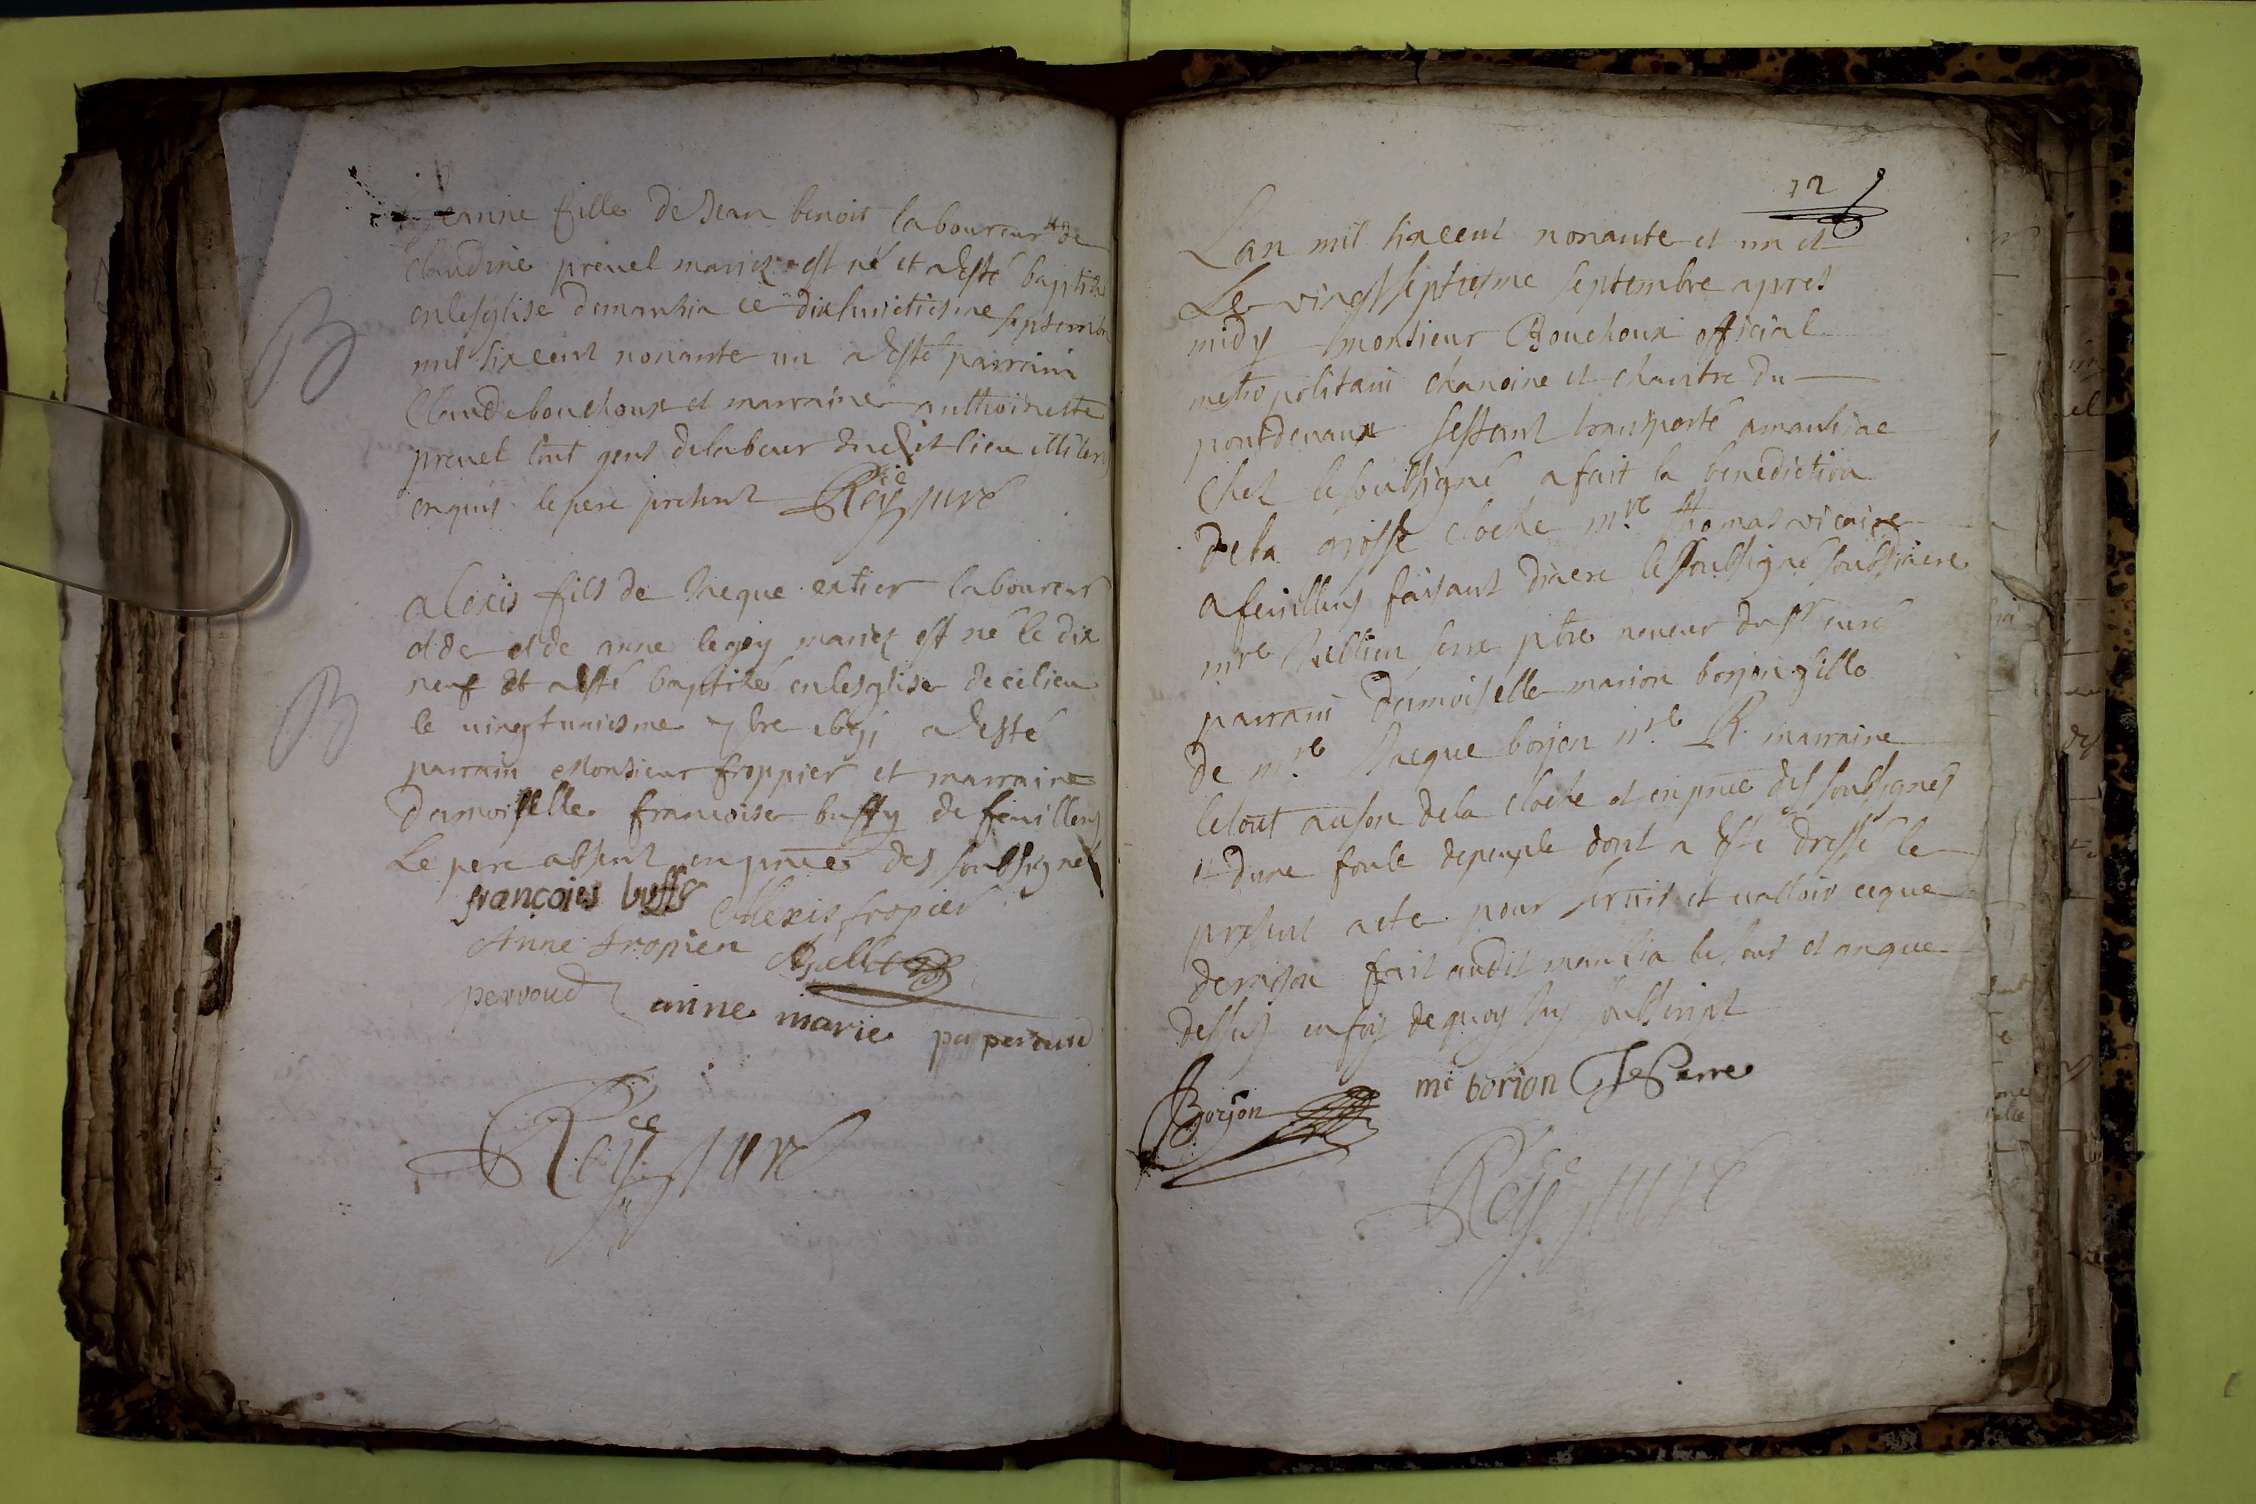 Jeanne fille de Jean benoit laboureur et de
Claudine preuel mariez est né et a esté baptizé
en lesglise demanzia ce dixhuictiesme septembre
mil sixcent nonante un a esté parrain
Claude bouchoux et marraine anthoinette
preuel tout gens delabeur dudit lieu illiteres
enquis le pere present Rey curé
alexis fils de Jaque extier laboureur
et de et de anne legoy mariez est né le dix
neuf et a esté baptizé en lesglise de ce lieu
le vingtuniesme 7bre 1691 a esté
parrain Monsieur froppier et marraine
damoiselle francoise buffy de feuillens
Le pere absent en pnce des soubsignes
françois buffy Allexis fropier
Anne fropier
perroud anne marie perroud
Rey curé
12
Lan mil sixcent nonante et un et
Le vingtseptiesme septembre apres
midy monsieur Bouchoux official
metropolitain chanoine et chantre du
pontdevaux sestant transporté amanziac
Chez le soubsigné a fait la benediction
de la grosse cloche mre thomas vicaire
a feuillens faisant diacre le soubsigné soubdiacre
mre serre ptre neveur du sr curé
parrain damoiselle marion borjon fille
de mre Jaque borjon nre R. marraine
le tout au son de la cloche et en pnce des soubsignes
et dune foule de peuple dont a esté dressé le
present acte pour servir et valloir ceque
de raison fait audit manzia les jour et an que
dessus en foy de quoy soubsript
Borjon m borion Serre
Rey curé